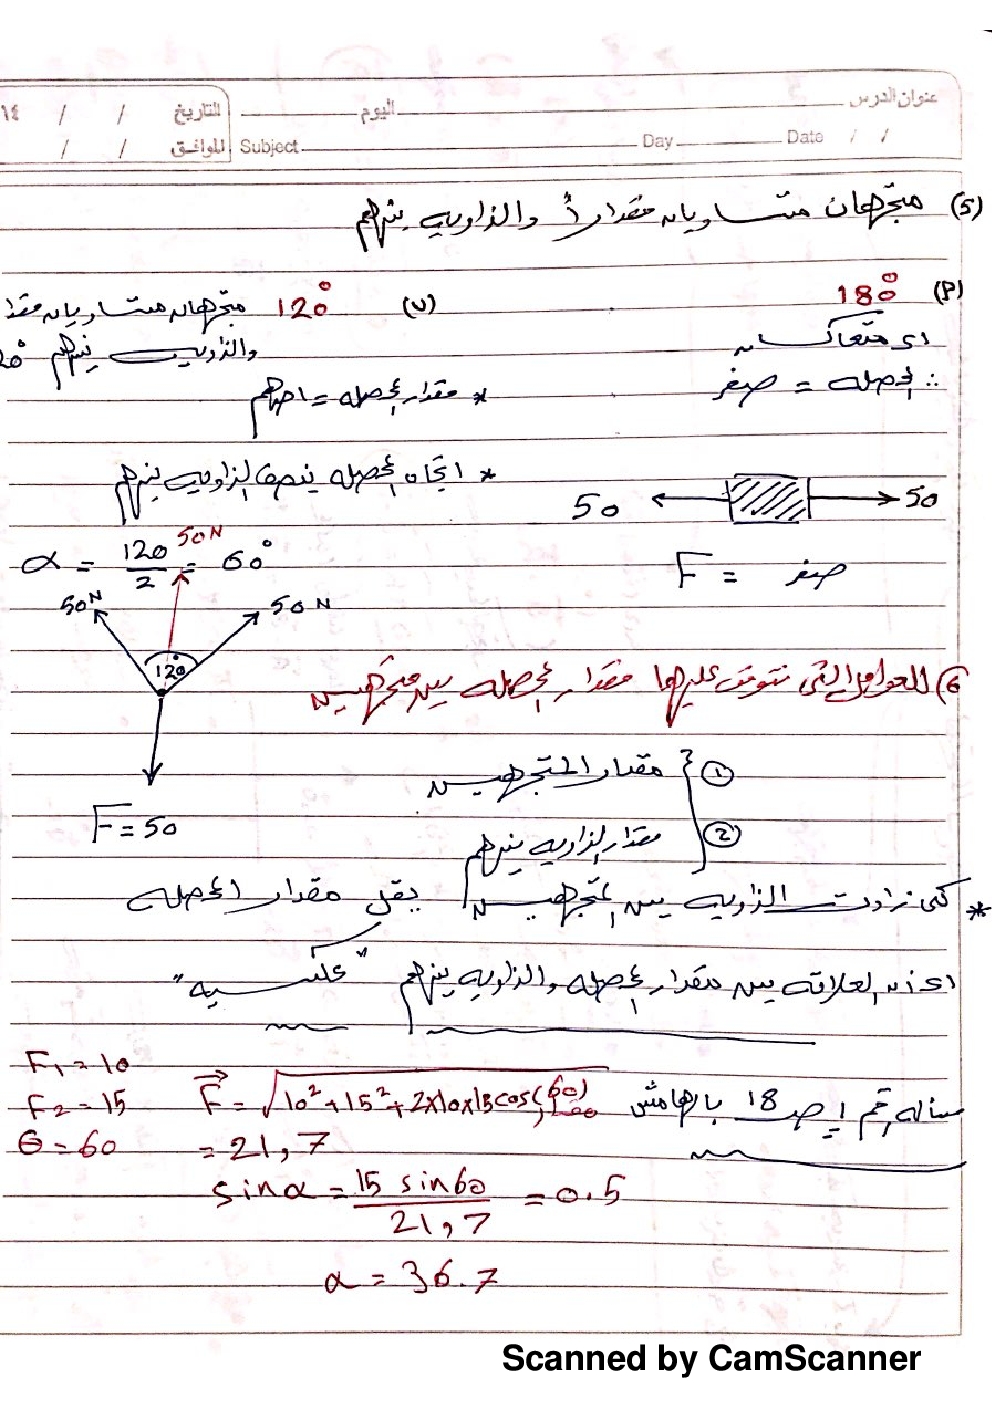 عنوان الدرس اليوم التاريخ / / ١٤
Date / / Day Subject الموافق / /
(5) متجهان متساويان مقداراً والزاويه بينهم
(P) 180°
اى متعاكسان
∴ المحصله = صفر
50 50
F = صفر
(ب) 120° متجهان متساويان مقدا
والزاويه بينهم 20°
* مقدار المحصله = احدهم
* اتجاه المحصله ينصف الزاويه بينهم
α = 120/2 = 60°
50N
50N 50N
120°
F = 50
6) العوامل التى تتوقف عليها مقدار محصله بين متجهين
① مقدار المتجهين
② مقدار الزاويه بينهم
* كلما زادت الزاويه بين المتجهين يقل مقدار المحصله
اى ان العلاقه بين مقدار المحصله والزاويه بينهم "عكسيه"
مسأله رقم 1 صـ 18 بالهامش
F1 = 10
F2 = 15
θ = 60
F = √10²+15²+2x10x15cos(60) مقدار
= 21,7
sinα = 15 sin60 / 21,7 = 0.5
α = 36.7
Scanned by CamScanner